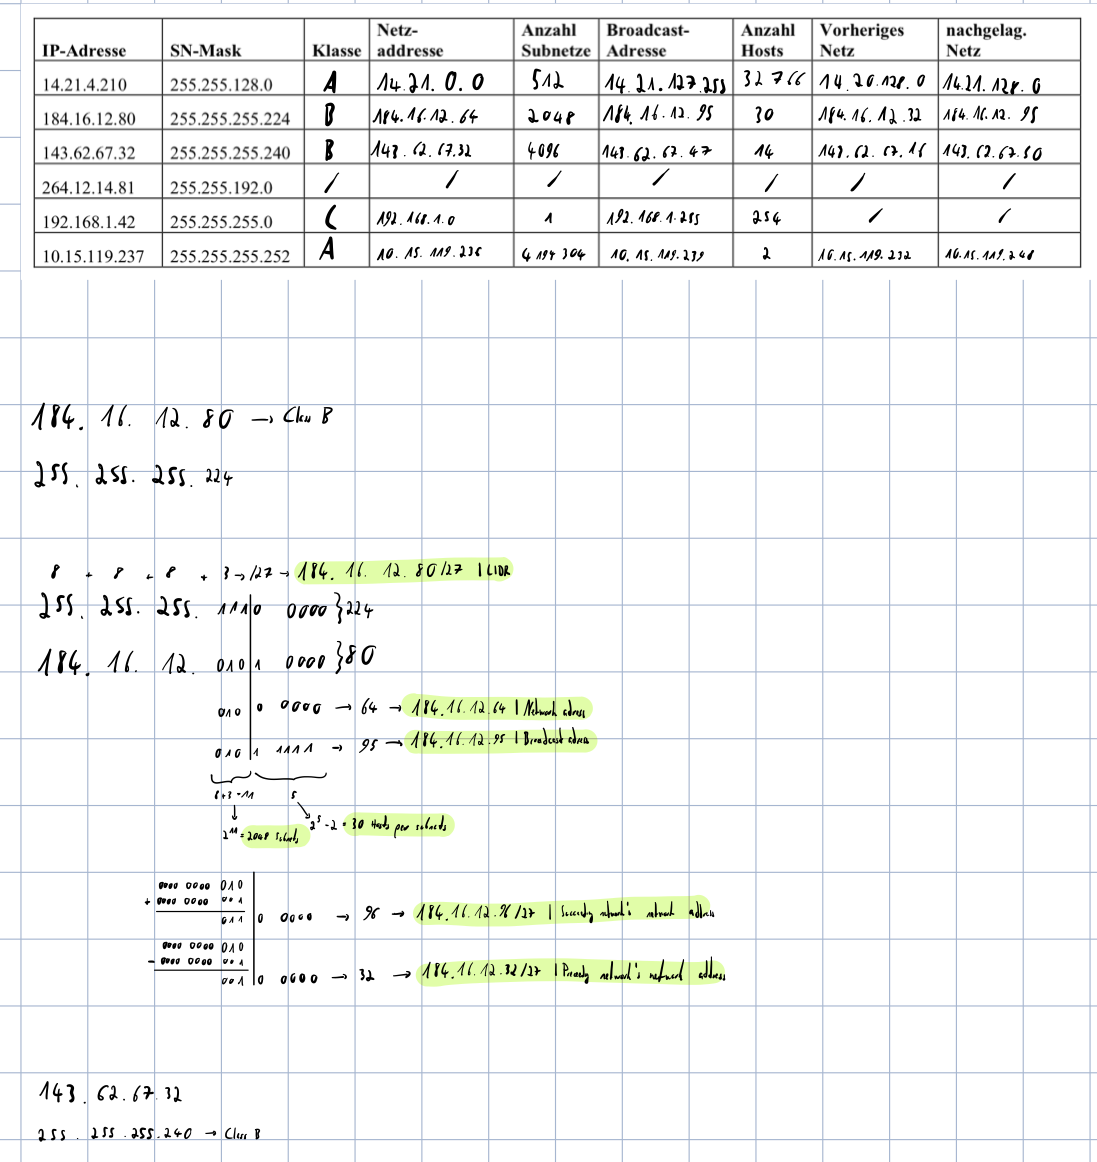 IP-Adresse SN-Mask Klasse Netz-addresse Anzahl Subnetze Broadcast-Adresse Anzahl Hosts Vorheriges Netz nachgelag. Netz
14.21.4.210 255.255.128.0 A 14.21.0.0 512 14.21.127.255 32766 14.20.128.0 14.21.128.0
184.16.12.80 255.255.255.224 B 184.16.12.64 2048 184.16.12.95 30 184.16.12.32 184.16.12.95
143.62.67.32 255.255.255.240 B 143.62.67.32 4096 143.62.67.47 14 143.62.67.16 143.62.67.50
264.12.14.81 255.255.192.0 / / / / / / /
192.168.1.42 255.255.255.0 C 192.168.1.0 1 192.168.1.255 254 / /
10.15.119.237 255.255.255.252 A 10.15.119.236 4 194 304 10.15.119.239 2 10.15.119.232 10.15.119.240
184.16.12.80 → Class B
255.255.255.224
8 + 8 + 8 + 3 → /27 → 184.16.12.80/27 | CIDR
255.255.255.111|0 0000 }224
184.16.12.010|1 0000 }80
010|0 0000 → 64 → 184.16.12.64 | Network adress
010|1 1111 → 95 → 184.16.12.95 | Broadcast adress
8+3=11 5
2^11 = 2048 Subnets 2^5 - 2 = 30 Hosts per subnets
0000 0000 010
+ 0000 0000 001
011|0 0000 → 96 → 184.16.12.96/27 | network's network address
0000 0000 010
- 0000 0000 001
001|0 0000 → 32 → 184.16.12.32/27 | network's network address
143.62.67.32
255.255.255.240 → Class B